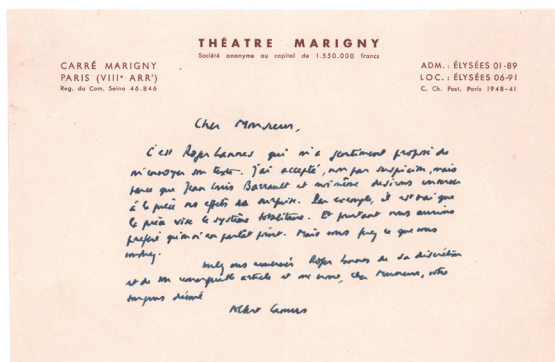 THÉATRE MARIGNY
Société anonyme au capital de 1.550.000 francs
CARRÉ MARIGNY
PARIS (VIIIe ARRt)
Reg. du Com. Seine 46.846
ADM. : ÉLYSÉES 01-89
LOC. : ÉLYSÉES 06-91
C. Ch. Post. Paris 1948-41
Cher Monsieur,
C'est Roger Lannes qui m'a gentiment proposé de
m'envoyer son texte. J'ai accepté, non par suspicion, mais
parce que Jean Louis Barrault et moi-même désirons conserver
à la pièce ses effets de surprise. Par exemple, il est vrai que
la pièce vise le système totalitaire. Et pourtant nous aurions
préféré qu'on n'en parlât point. Mais vous ferez ce que vous
voudrez.
vous remercier Roger Lannes de sa discrétion
et de son remarquable article et me croire, cher Monsieur, votre
toujours dévoué
Albert Camus